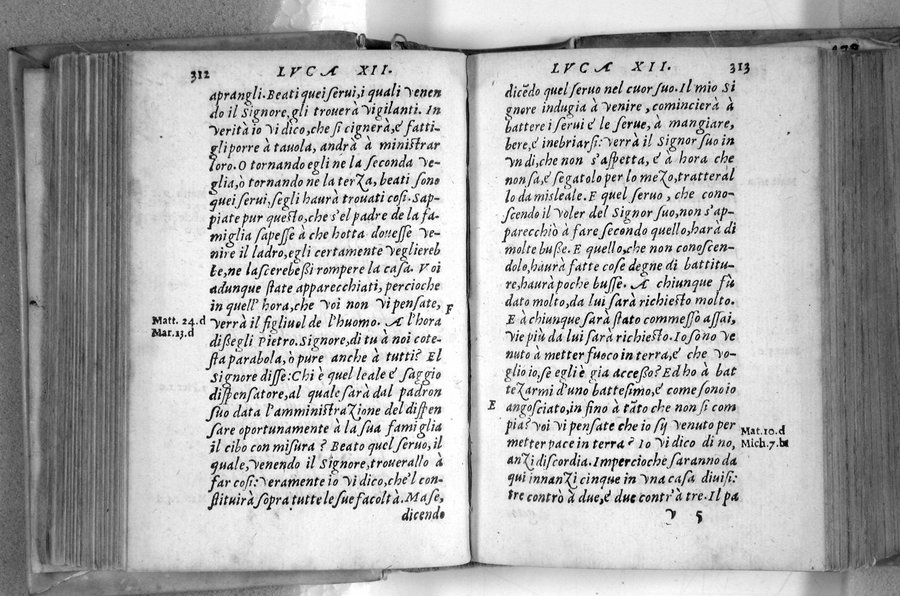 312 LVCA XII.
aprangli. Beati quei serui, i quali venen
do il Signore, gli trouerà vigilanti. In
verità io vi dico, che si cignerà, e' fatti-
gli porre à tauola, andrà à ministrar
loro. O tornando egli ne la seconda ve-
glia, ò tornando ne la terza, beati sono
quei serui, segli haurà trouati cosi. Sap-
piate pur questo, che s'el padre de la fa-
miglia sapesse à che hotta douesse ve-
nire il ladro, egli certamente vegliereb
te, ne lascerebeßi rompere la casa. Voi
adunque state apparecchiati, percioche
in quell' hora, che voi non vi pensate,
F
Matt. 24.d verrà il figliuol de l'huomo. A l'hora
Mar.13.d dißegli Pietro. Signore, di tu à noi cote-
sta parabola, ò pure anche à tutti? El
Signore disse: Chi è quel leale e' saggio
dispensatore, al quale sarà dal padron
suo data l'amministrazione del dispen
sare oportunamente à la sua famiglia
il cibo con misura? Beato quel seruo, il
quale, venendo il Signore, trouerallo à
far cosi: Veramente io vi dico, che'l con-
stituirà sopra tutte le sue facoltà. Ma se,
dicendo
LVCA XII. 313
dicẽdo quel seruo nel cuor suo. Il mio Si
gnore indugia à venire, comincierà à
battere i serui e' le serue, à mangiare,
bere, e' inebriarsi: verrà il Signor suo in
vn di, che non s'aspetta, e' à hora che
non sa, e' segatolo per lo mezo, tratteral
lo da misleale. E quel seruo, che cono-
scendo il voler del Signor suo, non s'ap-
parecchiò à fare secondo quello, harà di
molte buße. E quello, che non conoscen-
dolo, haurà fatte cose degne di battitu-
re, haurà poche busse. A chiunque fù
dato molto, da lui sarà richiesto molto.
E à chiunque sarà stato commesso assai,
vie più da lui sarà richiesto. Io sono ve
nuto à metter fuoco in terra, e' che vo-
glio io, se egli è gia acceßo? Ed ho à bat
tezarmi d'uno battesimo, e' come sono io
E angosciato, in fino à tãto che non si com
pia? voi vi pensate che io sy venuto per
metter pace in terra? Io vi dico di no,
Mat.10.d
Mich.7.b
anzi discordia. Impercioche saranno da
qui innanzi cinque in vna casa diuisi:
tre contrò à due, e' due contr'à tre. Il pa
y 5